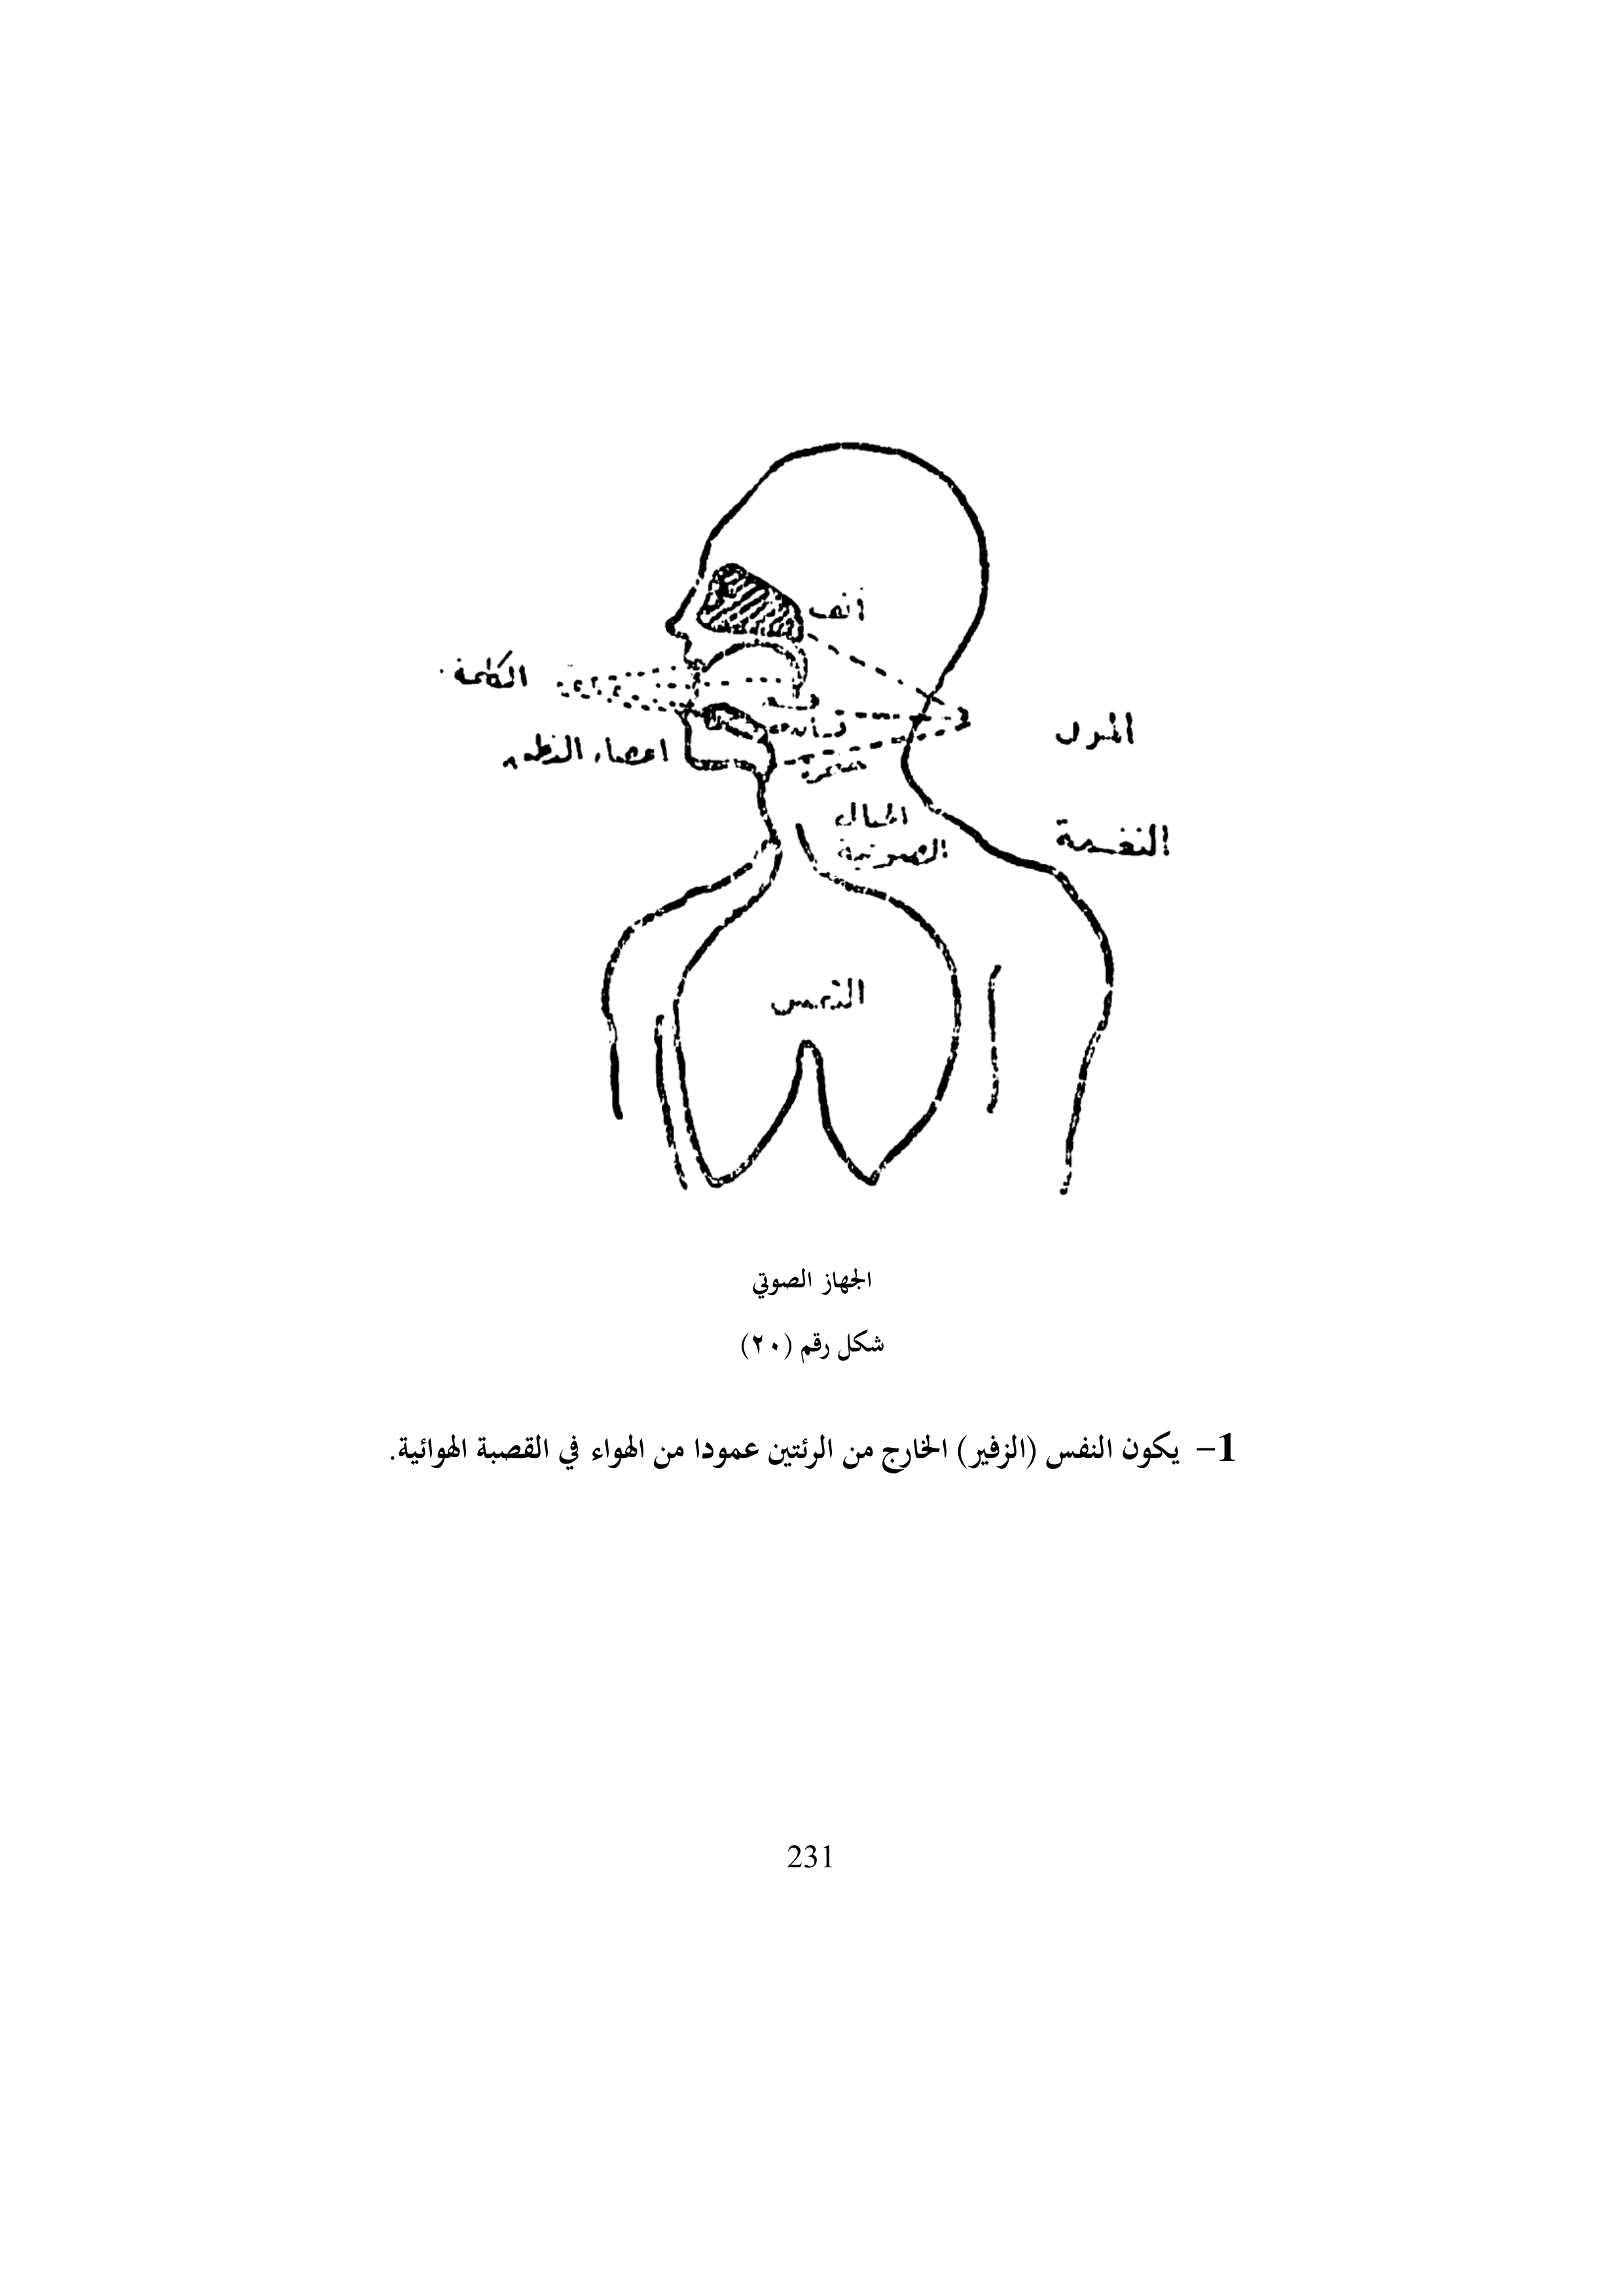 أنف
الكلمة
أعضاء النطق
الحبال
الصوتية
النغمة
النفس
الجهاز الصوتي
شكل رقم (٢٠)
1– يكون النفس (الزفير) الخارج من الرئتين عمودا من الهواء في القصبة الهوائية.
231